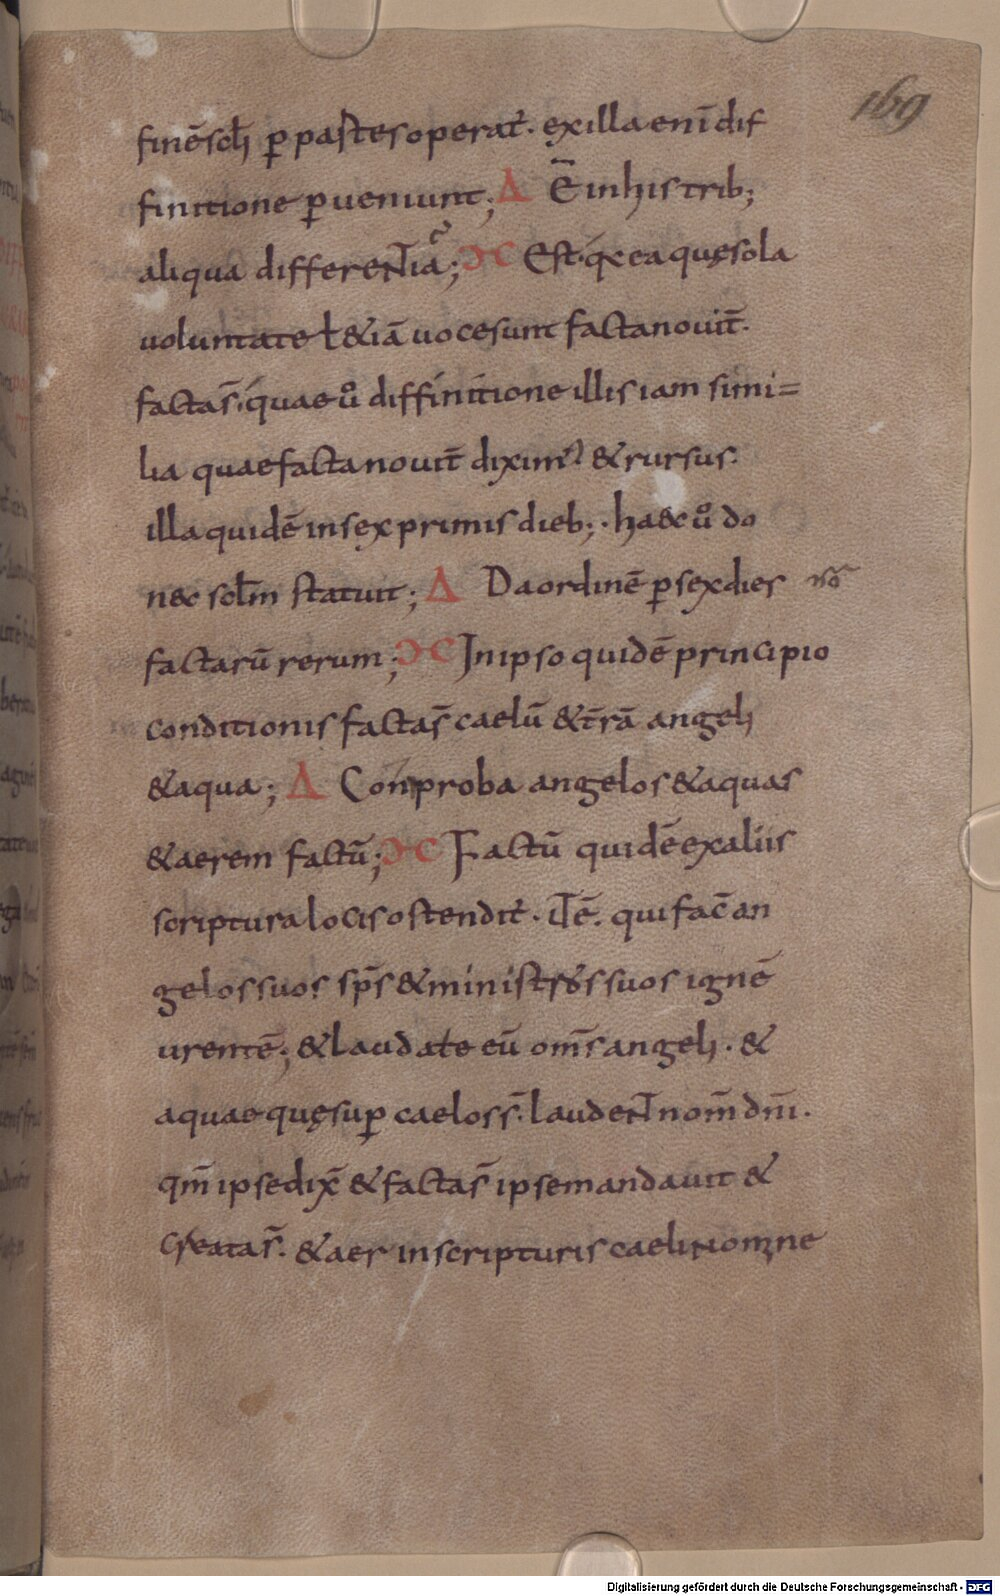 169
finēscłi ꝑ pastes operat̄. ex illa enī dif
finitione ꝑueniunt; Δ Ē in his trib;
aliqua differentia; ƆC Est. q̇ ea quę sola
uoluntate ł &iā uoce sunt facta nouit̄.
facta s̄. quae ů diffinitione illis iam simi=
lia quae facta nouit̄ diximꝰ. & rursus.
illa quidē in sex primis dieb;. haec ů do
nec scłm statuit; Δ Da ordinē ꝑ sex dies
factarū rerum; ƆC In ipso quidē principio
conditionis facta s̄ caelū & t̄rā angeli
& aqua; Δ Conproba angelos & aquas
& aerem factū; ƆC Factū quidē ex aliis
scriptura locis ostendit̄. itē. qui fac̄ an
gelos suos sp̄s & ministros suos ignē
urentē; & laudate eū om̄s angeli. &
aquae quę suꝑ caelos s̄. laudent nom̄ dn̄i.
qm̄ ipse dix̄ & facta s̄ ipse mandauit &
creata s̄. & aer in scripturis caeli nomne